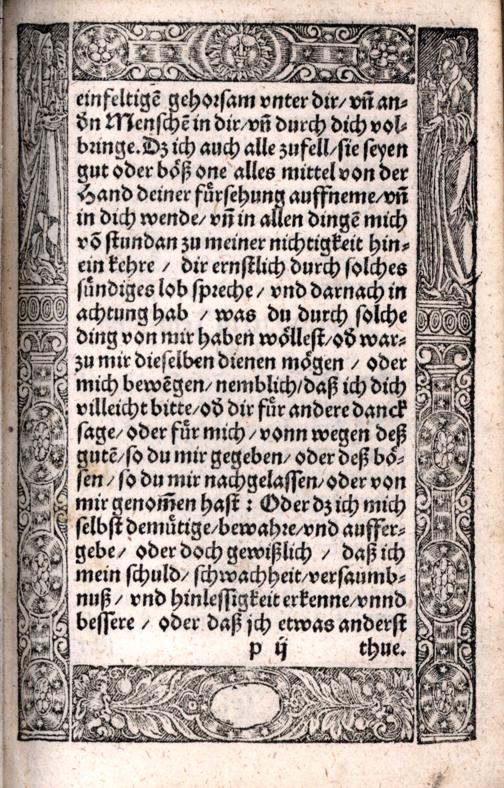 einfeltigẽ gehorsam vnter dir/ vñ an⸗
dñ Menschẽ in dir/ vñ durch dich vol⸗
bringe. Dz ich auch alle zufell/ sie seyen
gut oder böß one alles mittel von der
Hand deiner fürsehung auffneme/ vñ
in dich wende/ vñ in allen dingẽ mich
võ stundan zu meiner nichtigkeit hin⸗
ein kehre / dir ernstlich durch solches
sündiges lob spreche / vnd darnach in
achtung hab / was du durch solche
ding von mir haben wöllest/ oď war⸗
zu mir dieselben dienen mögen / oder
mich bewẽgen/ nemblich/ daß ich dich
villeicht bitte/ oď dir für andere danck
sage/ oder für mich / vonn wegen deß
gutẽ/ so du mir gegeben/ oder deß bö⸗
sen / so du mir nachgelassen/ oder von
mir genom̃en hast : Oder dz ich mich
selbst demütige/ bewahre/ vnd auffer⸗
gebe/ oder doch gewißlich / daß ich
mein schuld/ schwachheit/ versaumb⸗
nuß / vnd hinlessigkeit erkenne/ vnnd
bessere / oder daß ich etwas anderst
p ij thue.